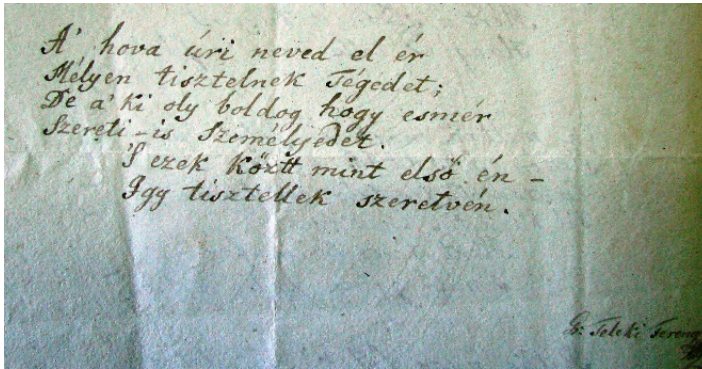 A' hova úri neved el ér
Mélyen tisztelnek Tégedet;
De a' ki oly boldog hogy esmér
Szereti-is Személyedet.
'S ezek köztt mint első én -
Igy tisztellek szeretvén.
G: Teleki Ferenc